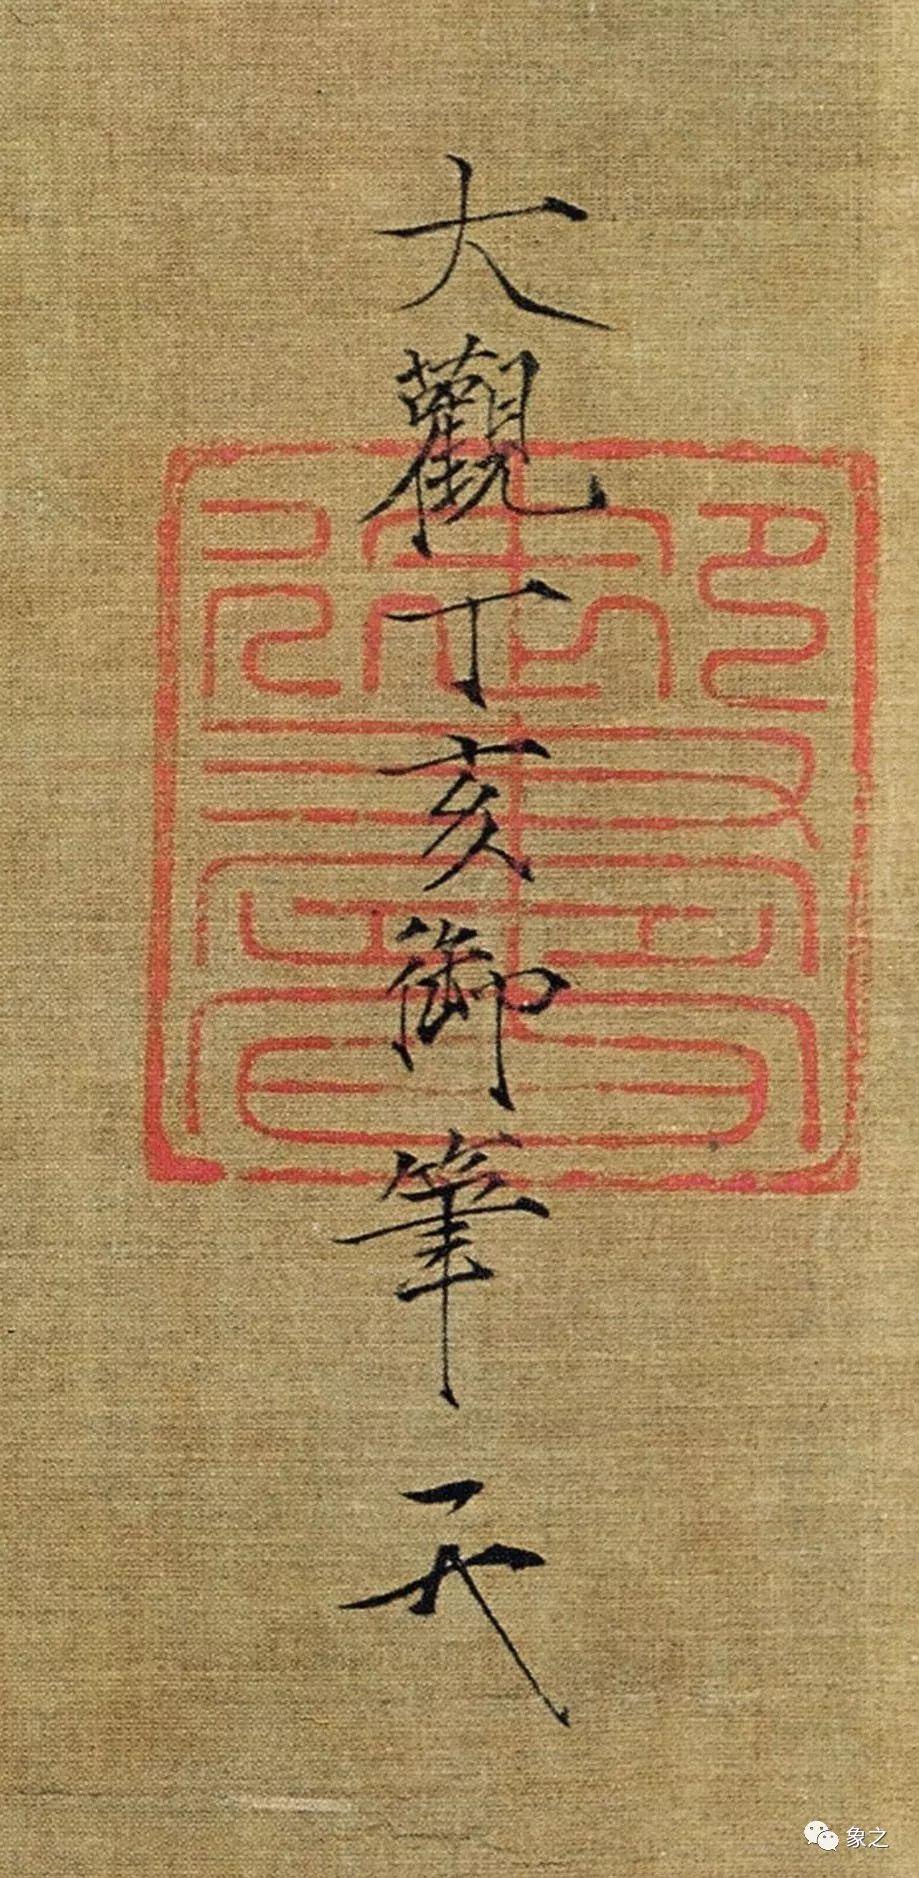 大觀丁亥御筆天
象之